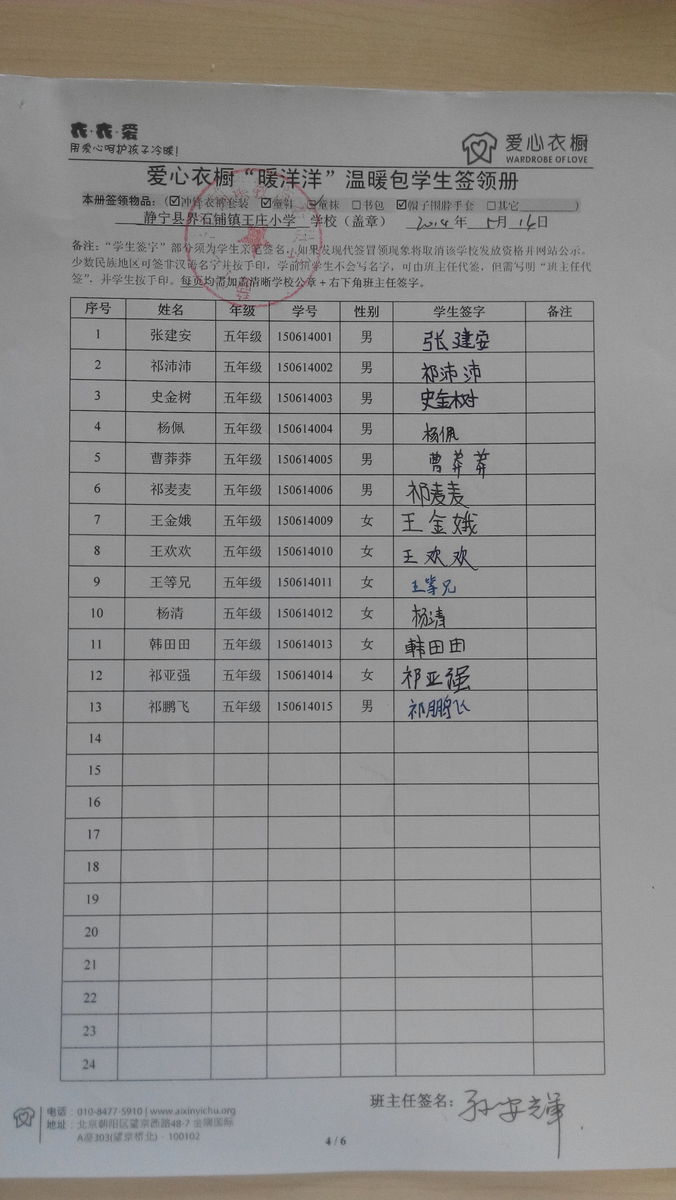 衣·衣·爱
用爱心呵护孩子冷暖!
爱心衣橱
WARDROBE OF LOVE
爱心衣橱“暖洋洋”温暖包学生签领册
本册签领物品：（☑冲锋衣裤套装 ☑童鞋 ☑童袜 □书包 ☑帽子围脖手套 □其它）
静宁县界石铺镇王庄小学 学校（盖章） 2014年 5月 16日
备注：“学生签字”部分须为学生亲笔签名，如果发现代签冒领现象将取消该学校发放资格并网站公示。
少数民族地区可签非汉语名字并按手印，学前班学生不会写名字，可由班主任代签，但需写明“班主任代
签”，并学生按手印。每页均需加盖清晰学校公章+右下角班主任签字。
序号 姓名 年级 学号 性别 学生签字 备注
1 张建安 五年级 150614001 男 张建安
2 祁沛沛 五年级 150614002 男 祁沛沛
3 史金树 五年级 150614003 男 史金树
4 杨佩 五年级 150614004 男 杨佩
5 曹莽莽 五年级 150614005 男 曹莽莽
6 祁麦麦 五年级 150614006 男 祁麦麦
7 王金娥 五年级 150614009 女 王金娥
8 王欢欢 五年级 150614010 女 王欢欢
9 王等兄 五年级 150614011 女 王等兄
10 杨清 五年级 150614012 女 杨清
11 韩田田 五年级 150614013 女 韩田田
12 祁亚强 五年级 150614014 女 祁亚强
13 祁鹏飞 五年级 150614015 男 祁鹏飞
14
15
16
17
18
19
20
21
22
23
24
班主任签名：孙安辉
电话：010-8477-5910 | www.aixinyichu.org
地址：北京朝阳区望京西路48-7 金隅国际
A座303(望京桥北) · 100102
4 / 6